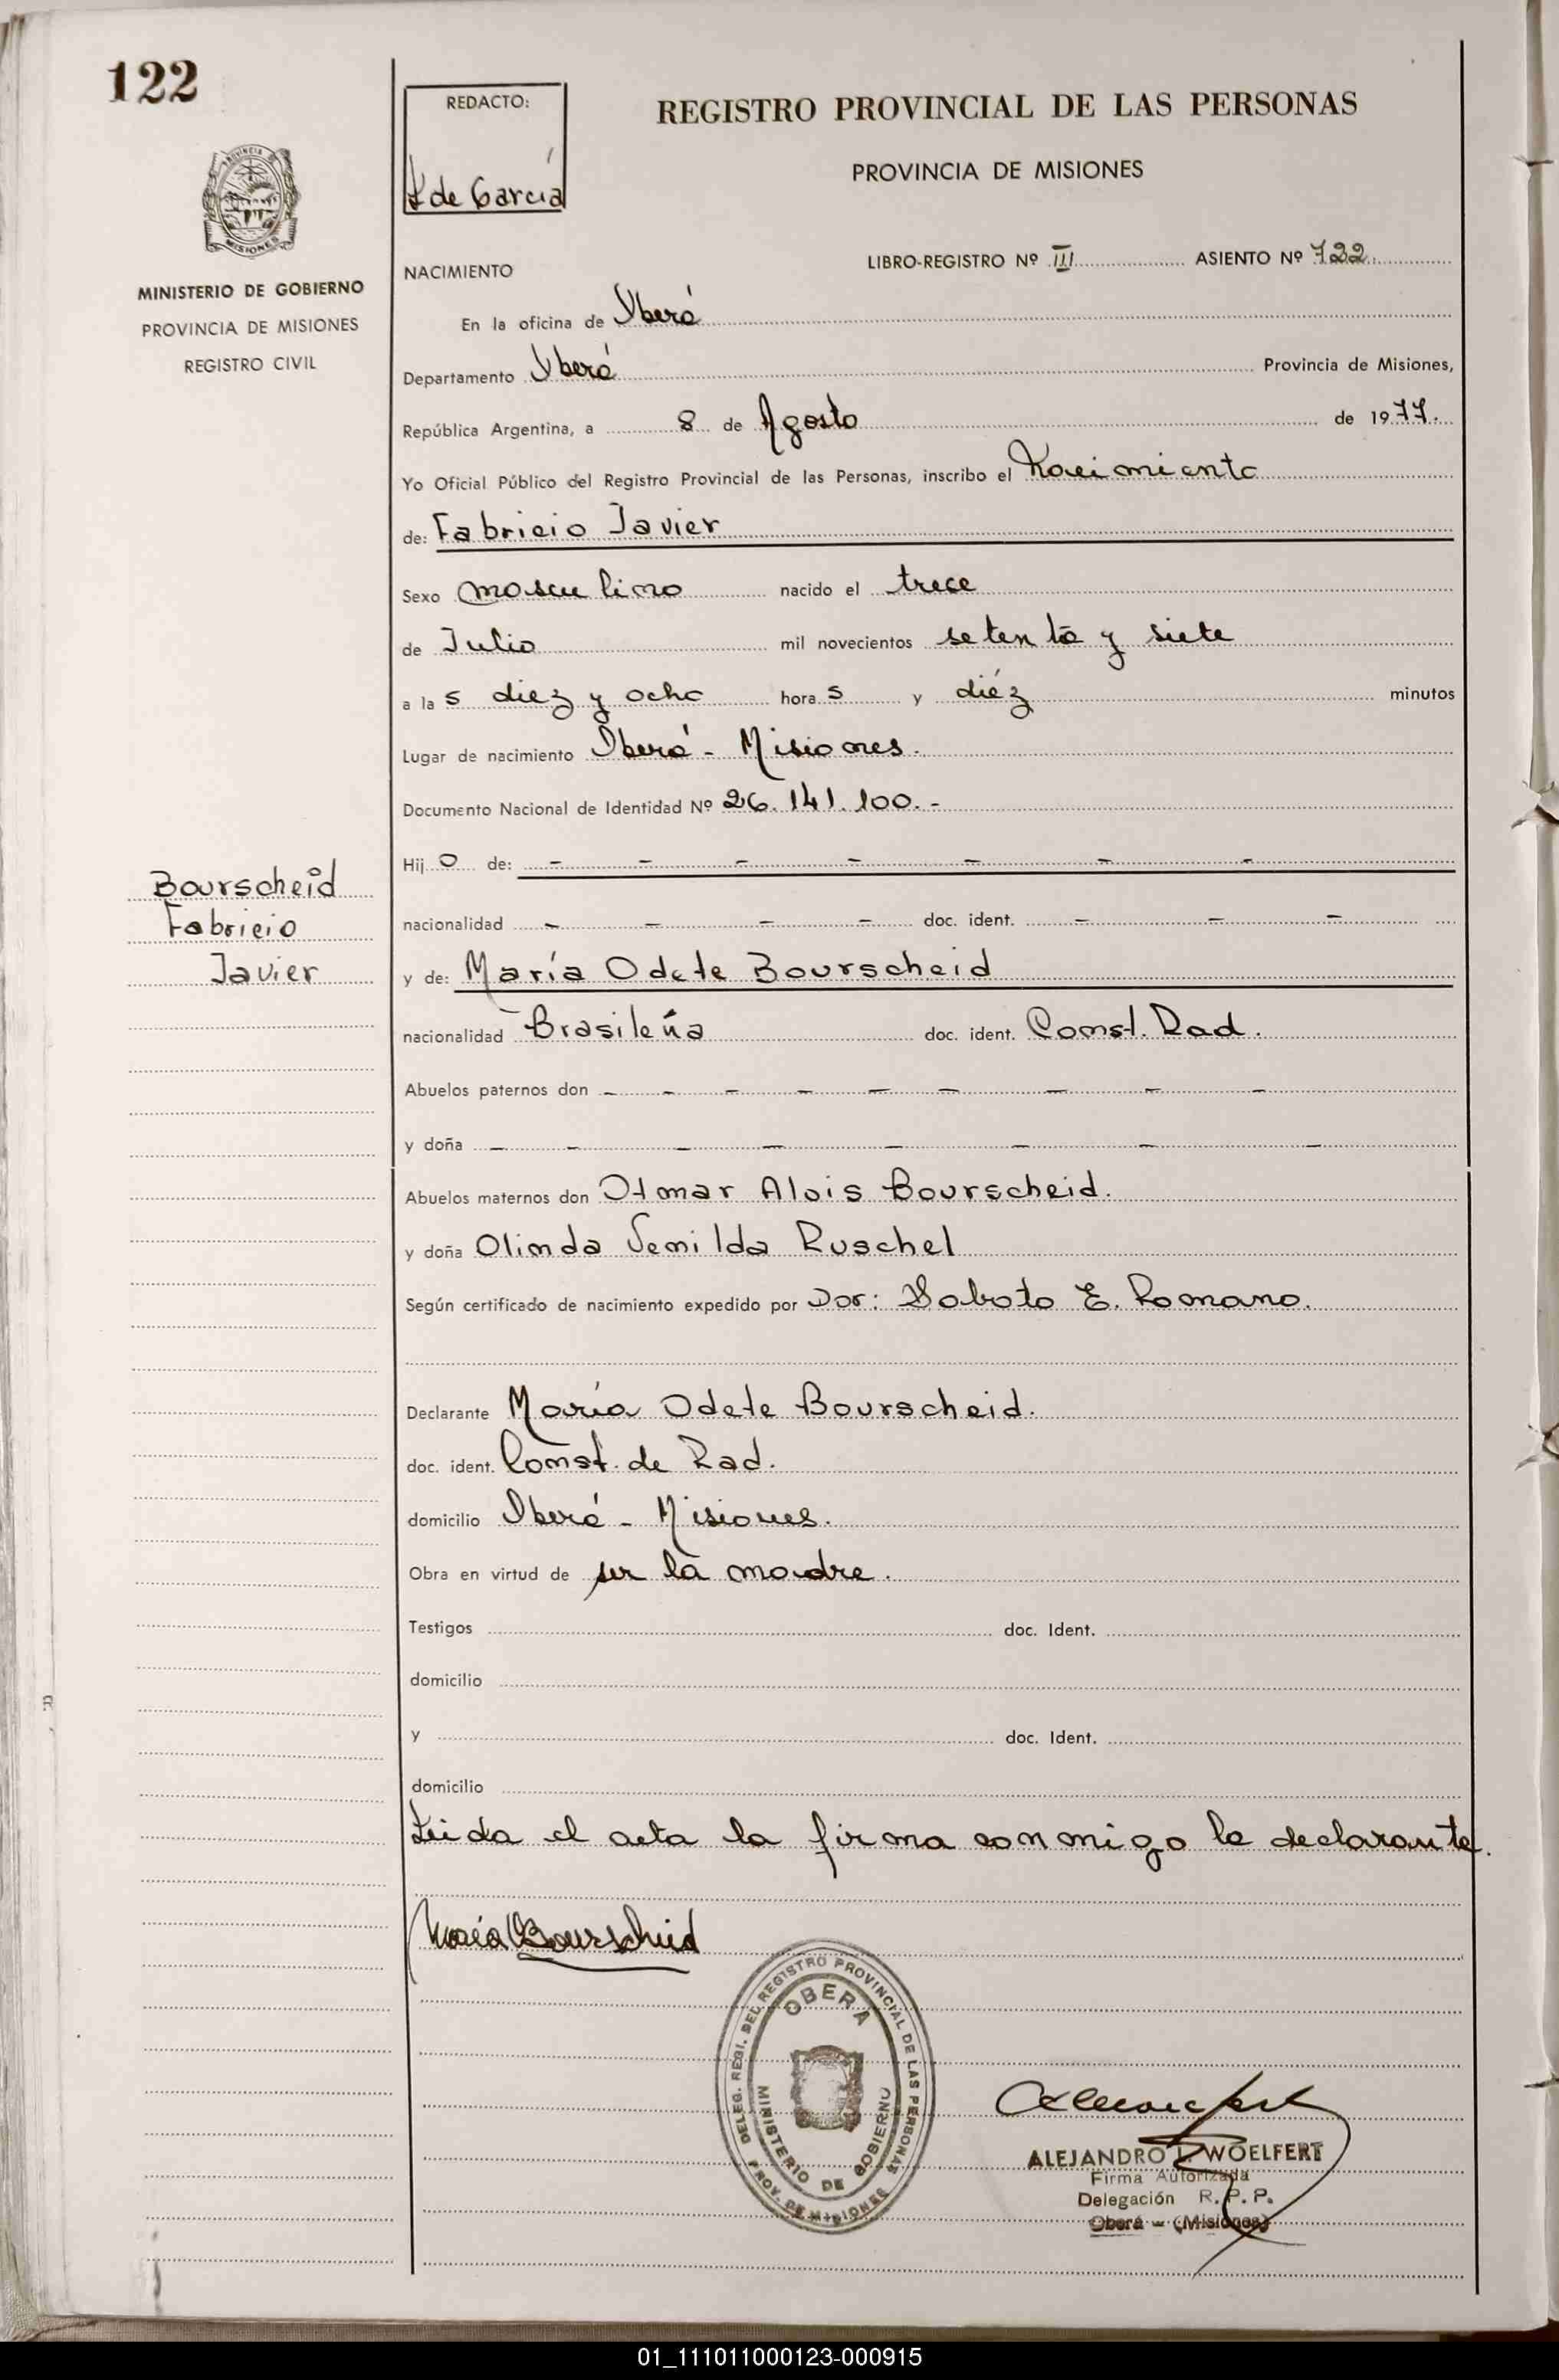 122
REDACTO:
L de García
REGISTRO PROVINCIAL DE LAS PERSONAS
PROVINCIA DE MISIONES
MISIONES
MINISTERIO DE GOBIERNO
PROVINCIA DE MISIONES
REGISTRO CIVIL
NACIMIENTO
LIBRO-REGISTRO Nº III ASIENTO Nº 722.
En la oficina de Oberá
Departamento Oberá Provincia de Misiones,
República Argentina, a 8 de Agosto de 1977.
Yo Oficial Público del Registro Provincial de las Personas, inscribo el Nacimiento
de: Fabricio Javier
Sexo masculino nacido el trece
de Julio mil novecientos setenta y siete
a las diez y ocho horas y diéz minutos
Lugar de nacimiento Oberá - Misiones.
Documento Nacional de Identidad Nº 26.141.100.-
Hijo de: - - - - - - -
Bourscheid
Fabricio
Javier
nacionalidad - - - - doc. ident. - - -
y de: María Odete Bourscheid
nacionalidad Brasileña doc. ident. Const. Rad.
Abuelos paternos don - - - - - - - - -
y doña - - - - - - - -
Abuelos maternos don Otmar Alois Bourscheid.
y doña Olinda Semilda Ruschel
Según certificado de nacimiento expedido por Dor: Saboto E. Romano.
Declarante María Odete Bourscheid.
doc. ident. Const. de Rad.
domicilio Oberá - Misiones.
Obra en virtud de ser la madre.
Testigos doc. Ident.
domicilio
y doc. Ident.
domicilio
Leida el acta la firma conmigo la declarante.
María O Bourscheid
DELEG. REGI. DEL REGISTRO PROVINCIAL DE LAS PERSONAS
OBERA
MINISTERIO DE GOBIERNO
PROV. DE MISIONES
ALEJANDRO WOELFERT
Firma Autorizada
Delegación R.P.P.
Oberá - (Misiones)
01_111011000123-000915